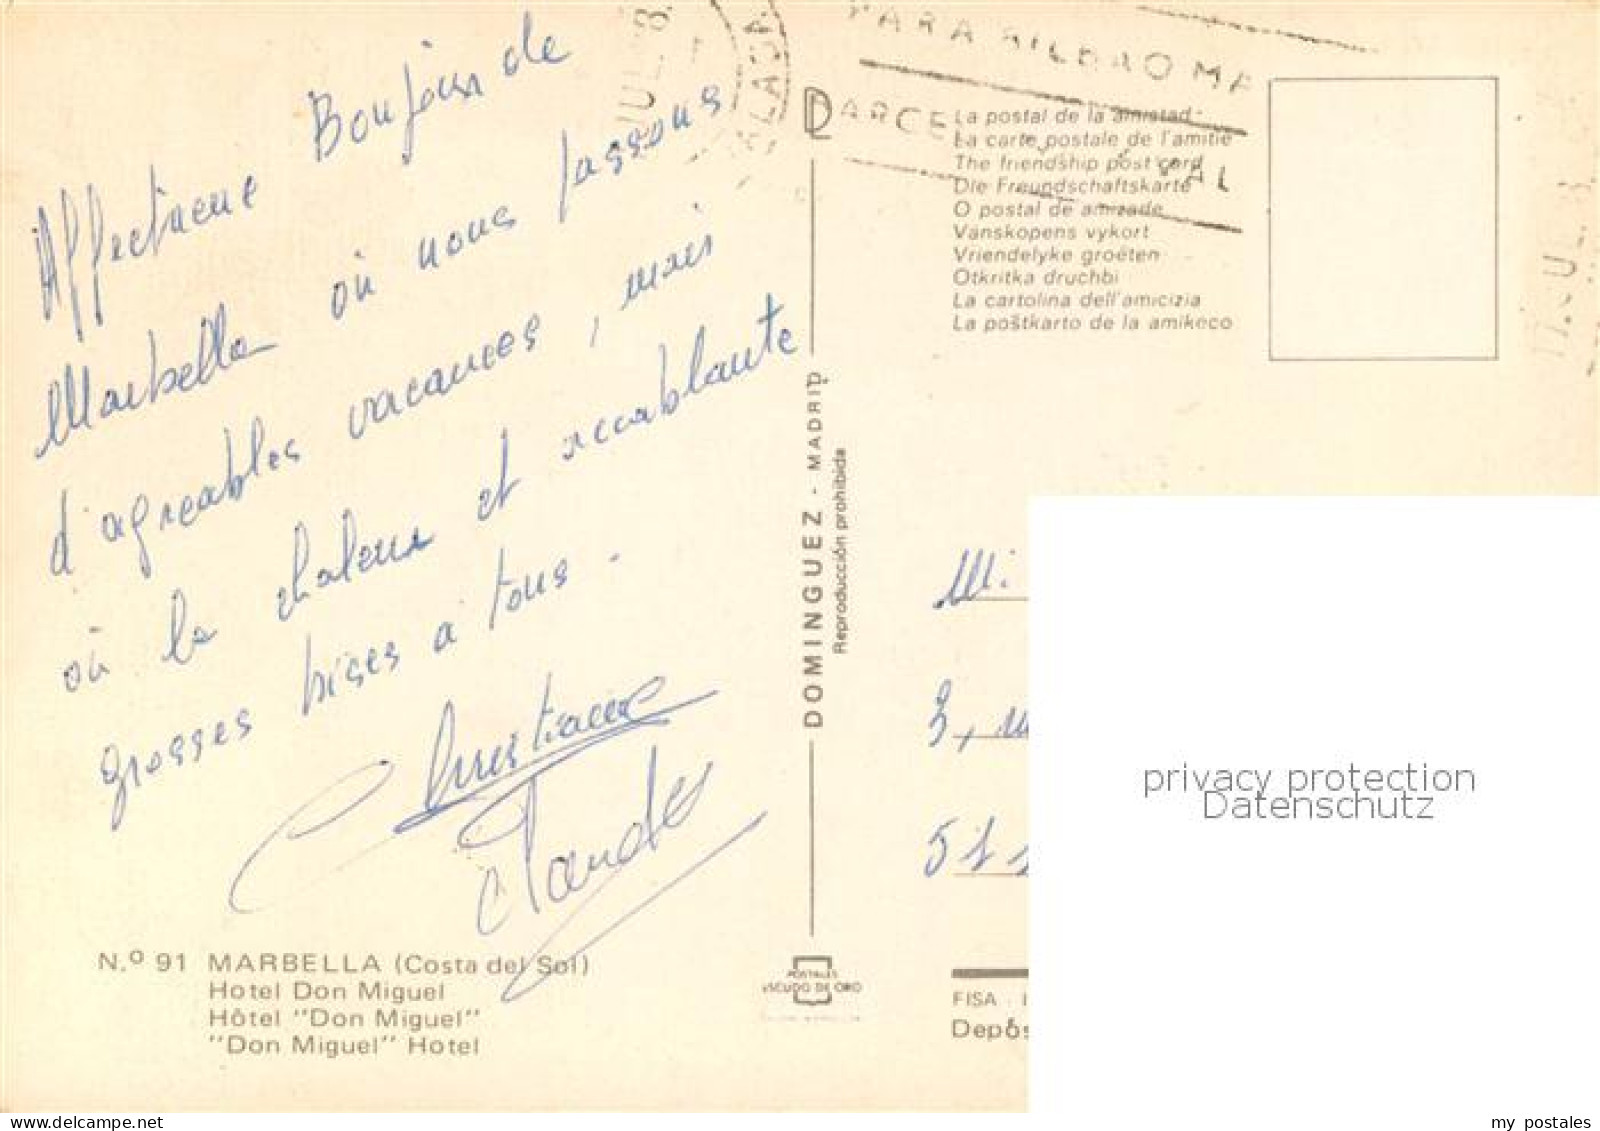 Affectueux Bonjour de
Marbella où nous passons
d'agréables vacances, mais
où la chaleur et accablante
grosses bises à tous.
Christiane
Claude
N.º 91 MARBELLA (Costa del Sol)
Hotel Don Miguel
Hôtel "Don Miguel"
"Don Miguel" Hotel
DOMINGUEZ - MADRID
Reproducción prohibida
POSTALES
ESCUDO DE ORO
PARA BILBAO MA
BARCE
La postal de la amistad
La carte postale de l'amitié
The friendship post card
Die Freundschaftskarte
O postal de amizade
Vanskopens vykort
Vriendelyke groeten
Otkritka druchbi
La cartolina dell'amicizia
La poŝtkarto de la amikeco
M.
3,
51
FISA
Depós
privacy protection
Datenschutz
delcampe.net
my_postales